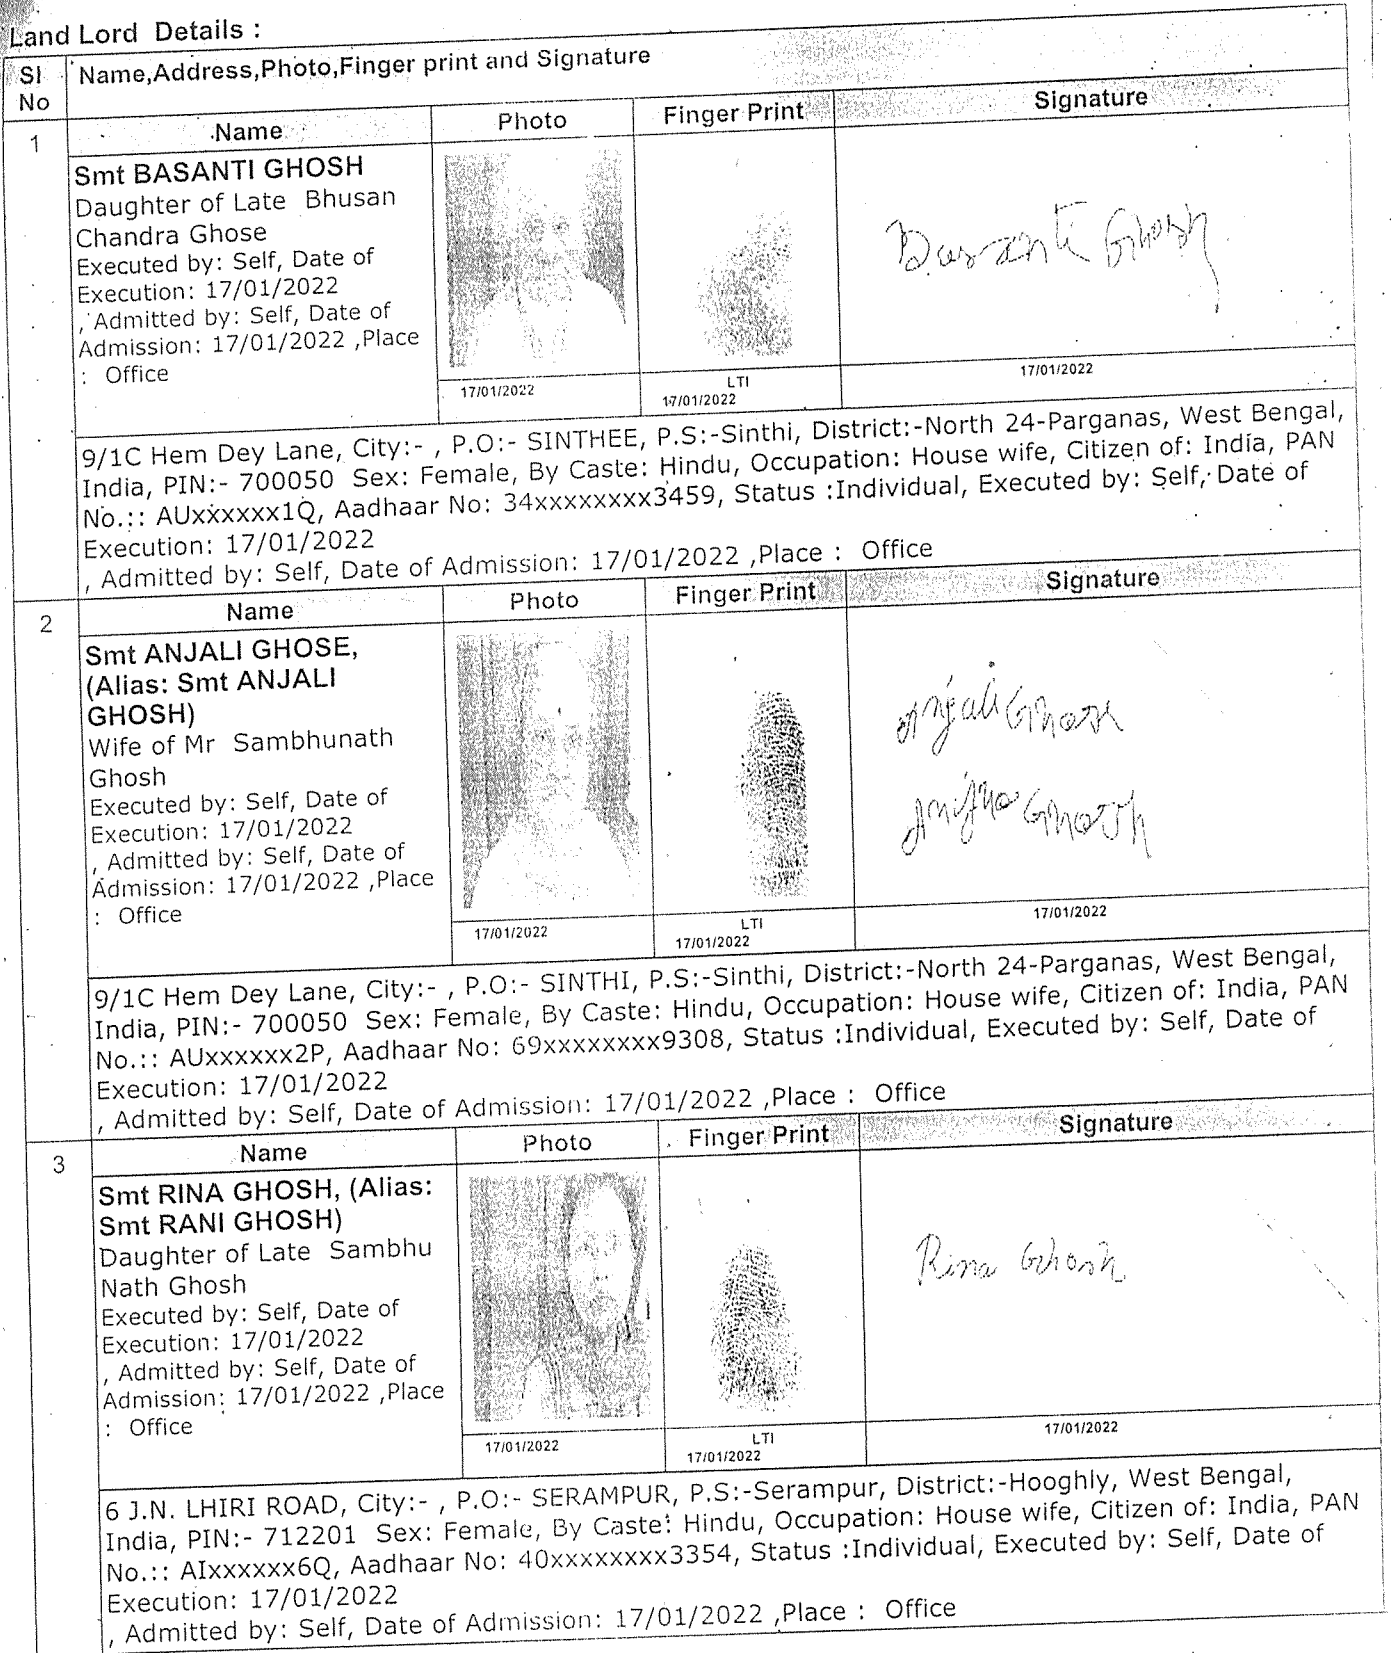 Land Lord Details :
Sl No
Name,Address,Photo,Finger print and Signature
1
Name
Photo
Finger Print
Signature
Smt BASANTI GHOSH
Daughter of Late Bhusan
Chandra Ghose
Executed by: Self, Date of
Execution: 17/01/2022
, Admitted by: Self, Date of
Admission: 17/01/2022 ,Place
: Office
Basanti Ghosh
17/01/2022
LTI
17/01/2022
17/01/2022
9/1C Hem Dey Lane, City:- , P.O:- SINTHEE, P.S:-Sinthi, District:-North 24-Parganas, West Bengal,
India, PIN:- 700050 Sex: Female, By Caste: Hindu, Occupation: House wife, Citizen of: India, PAN
No.:: AUxxxxxx1Q, Aadhaar No: 34xxxxxxxx3459, Status :Individual, Executed by: Self, Date of
Execution: 17/01/2022
, Admitted by: Self, Date of Admission: 17/01/2022 ,Place : Office
2
Name
Photo
Finger Print
Signature
Smt ANJALI GHOSE,
(Alias: Smt ANJALI
GHOSH)
Wife of Mr Sambhunath
Ghosh
Executed by: Self, Date of
Execution: 17/01/2022
, Admitted by: Self, Date of
Admission: 17/01/2022 ,Place
: Office
Anjali Ghose
Ghosh
17/01/2022
LTI
17/01/2022
17/01/2022
9/1C Hem Dey Lane, City:- , P.O:- SINTHI, P.S:-Sinthi, District:-North 24-Parganas, West Bengal,
India, PIN:- 700050 Sex: Female, By Caste: Hindu, Occupation: House wife, Citizen of: India, PAN
No.:: AUxxxxxx2P, Aadhaar No: 69xxxxxxxx9308, Status :Individual, Executed by: Self, Date of
Execution: 17/01/2022
, Admitted by: Self, Date of Admission: 17/01/2022 ,Place : Office
3
Name
Photo
Finger Print
Signature
Smt RINA GHOSH, (Alias:
Smt RANI GHOSH)
Daughter of Late Sambhu
Nath Ghosh
Executed by: Self, Date of
Execution: 17/01/2022
, Admitted by: Self, Date of
Admission: 17/01/2022 ,Place
: Office
Rina Ghosh
17/01/2022
LTI
17/01/2022
17/01/2022
6 J.N. LHIRI ROAD, City:- , P.O:- SERAMPUR, P.S:-Serampur, District:-Hooghly, West Bengal,
India, PIN:- 712201 Sex: Female, By Caste: Hindu, Occupation: House wife, Citizen of: India, PAN
No.:: AIxxxxxx6Q, Aadhaar No: 40xxxxxxxx3354, Status :Individual, Executed by: Self, Date of
Execution: 17/01/2022
, Admitted by: Self, Date of Admission: 17/01/2022 ,Place : Office